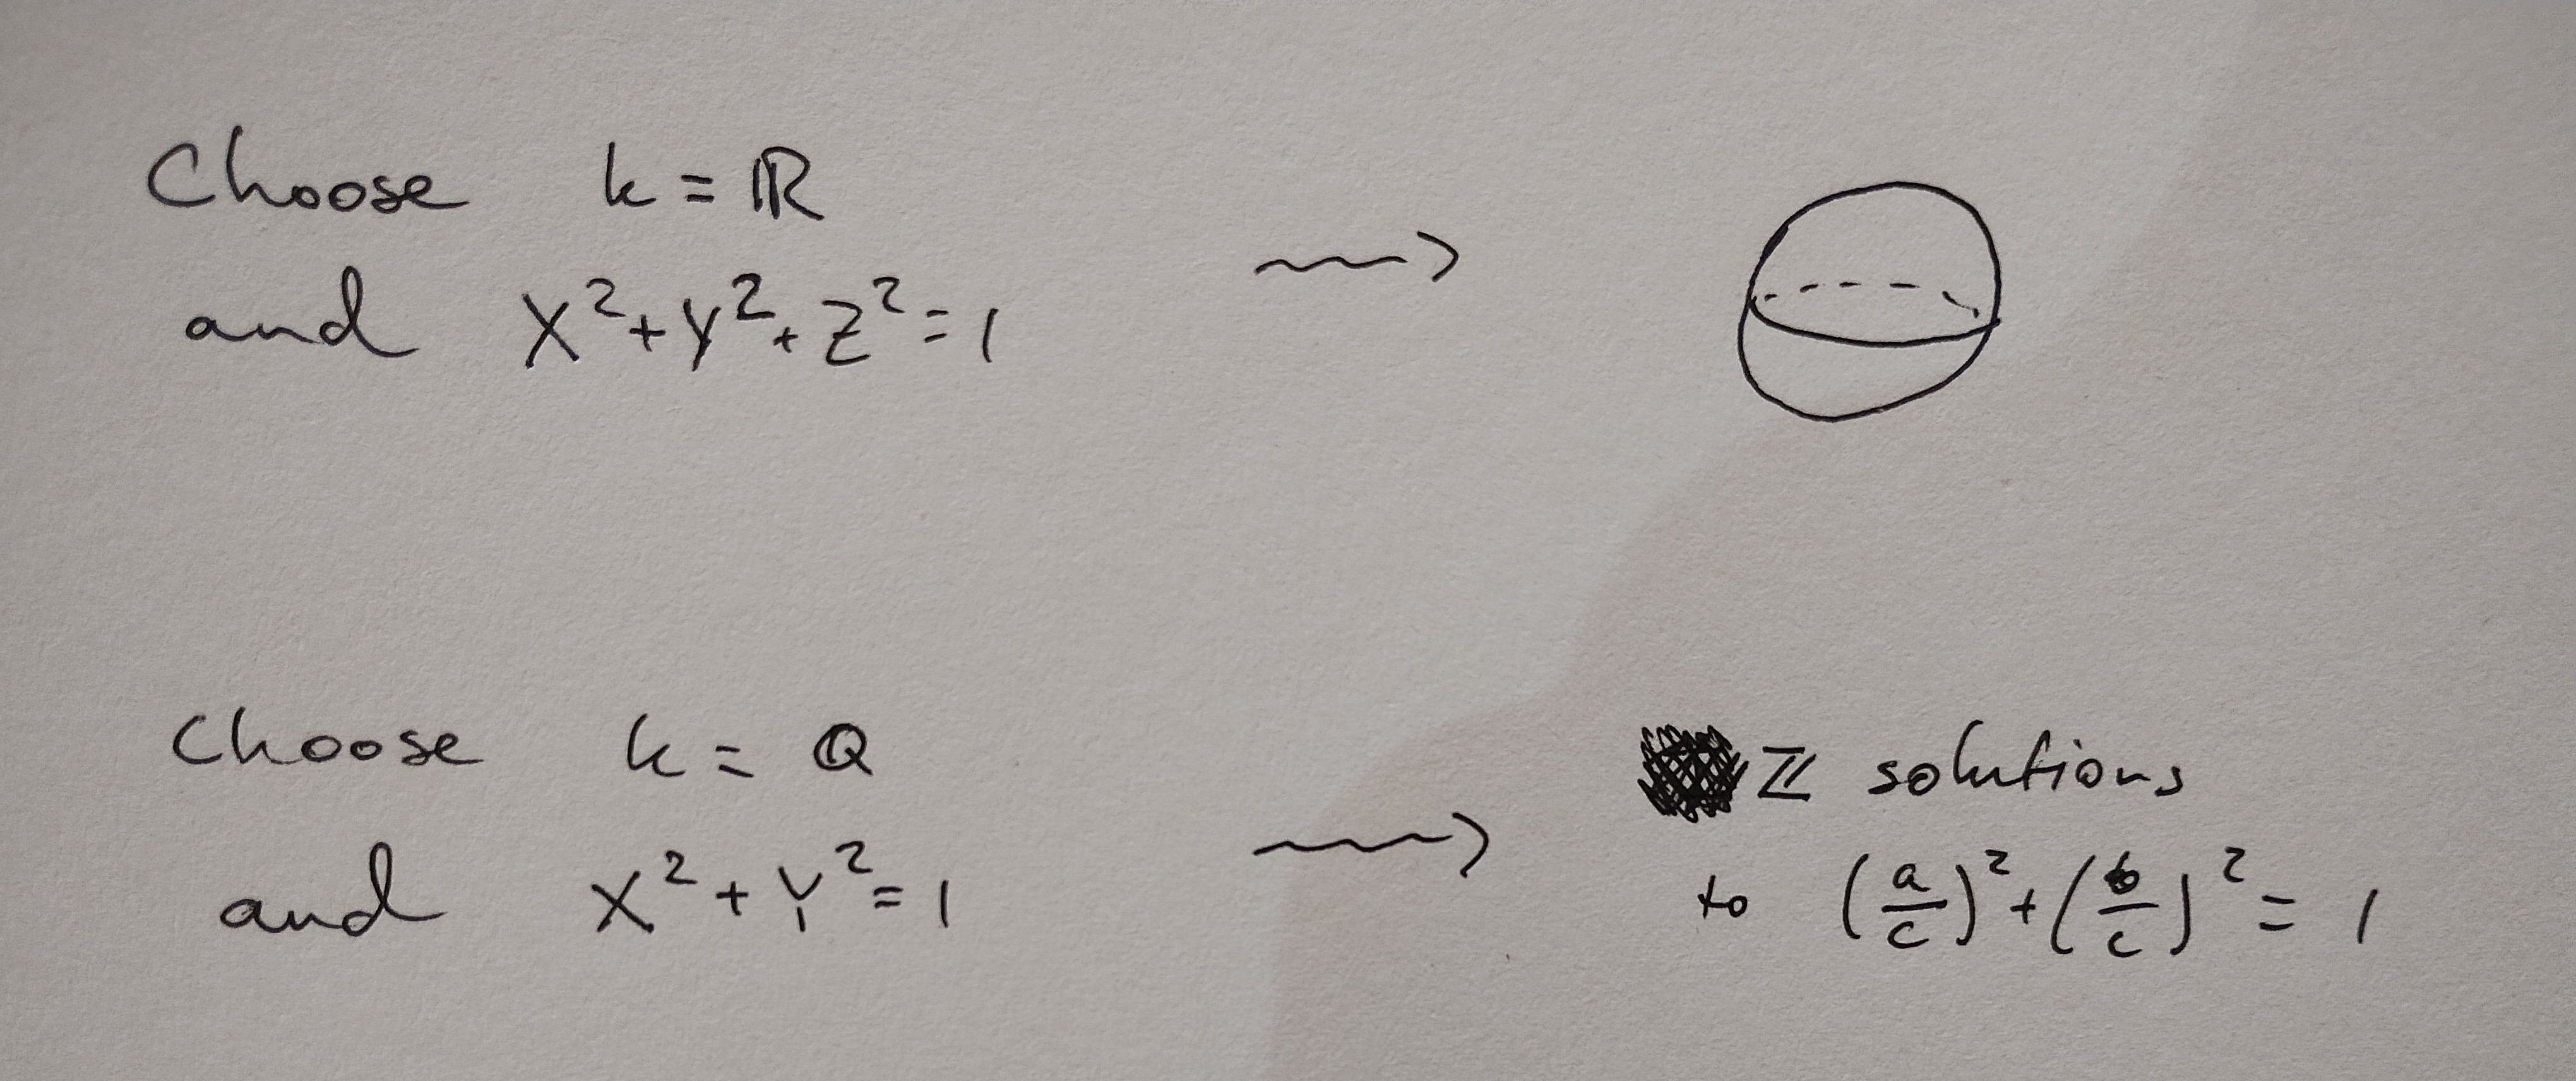 Choose k = ℝ
and X² + Y² + Z² = 1
Choose k = ℚ
and X² + Y² = 1
ℤ solutions
to (a/c)² + (b/c)² = 1